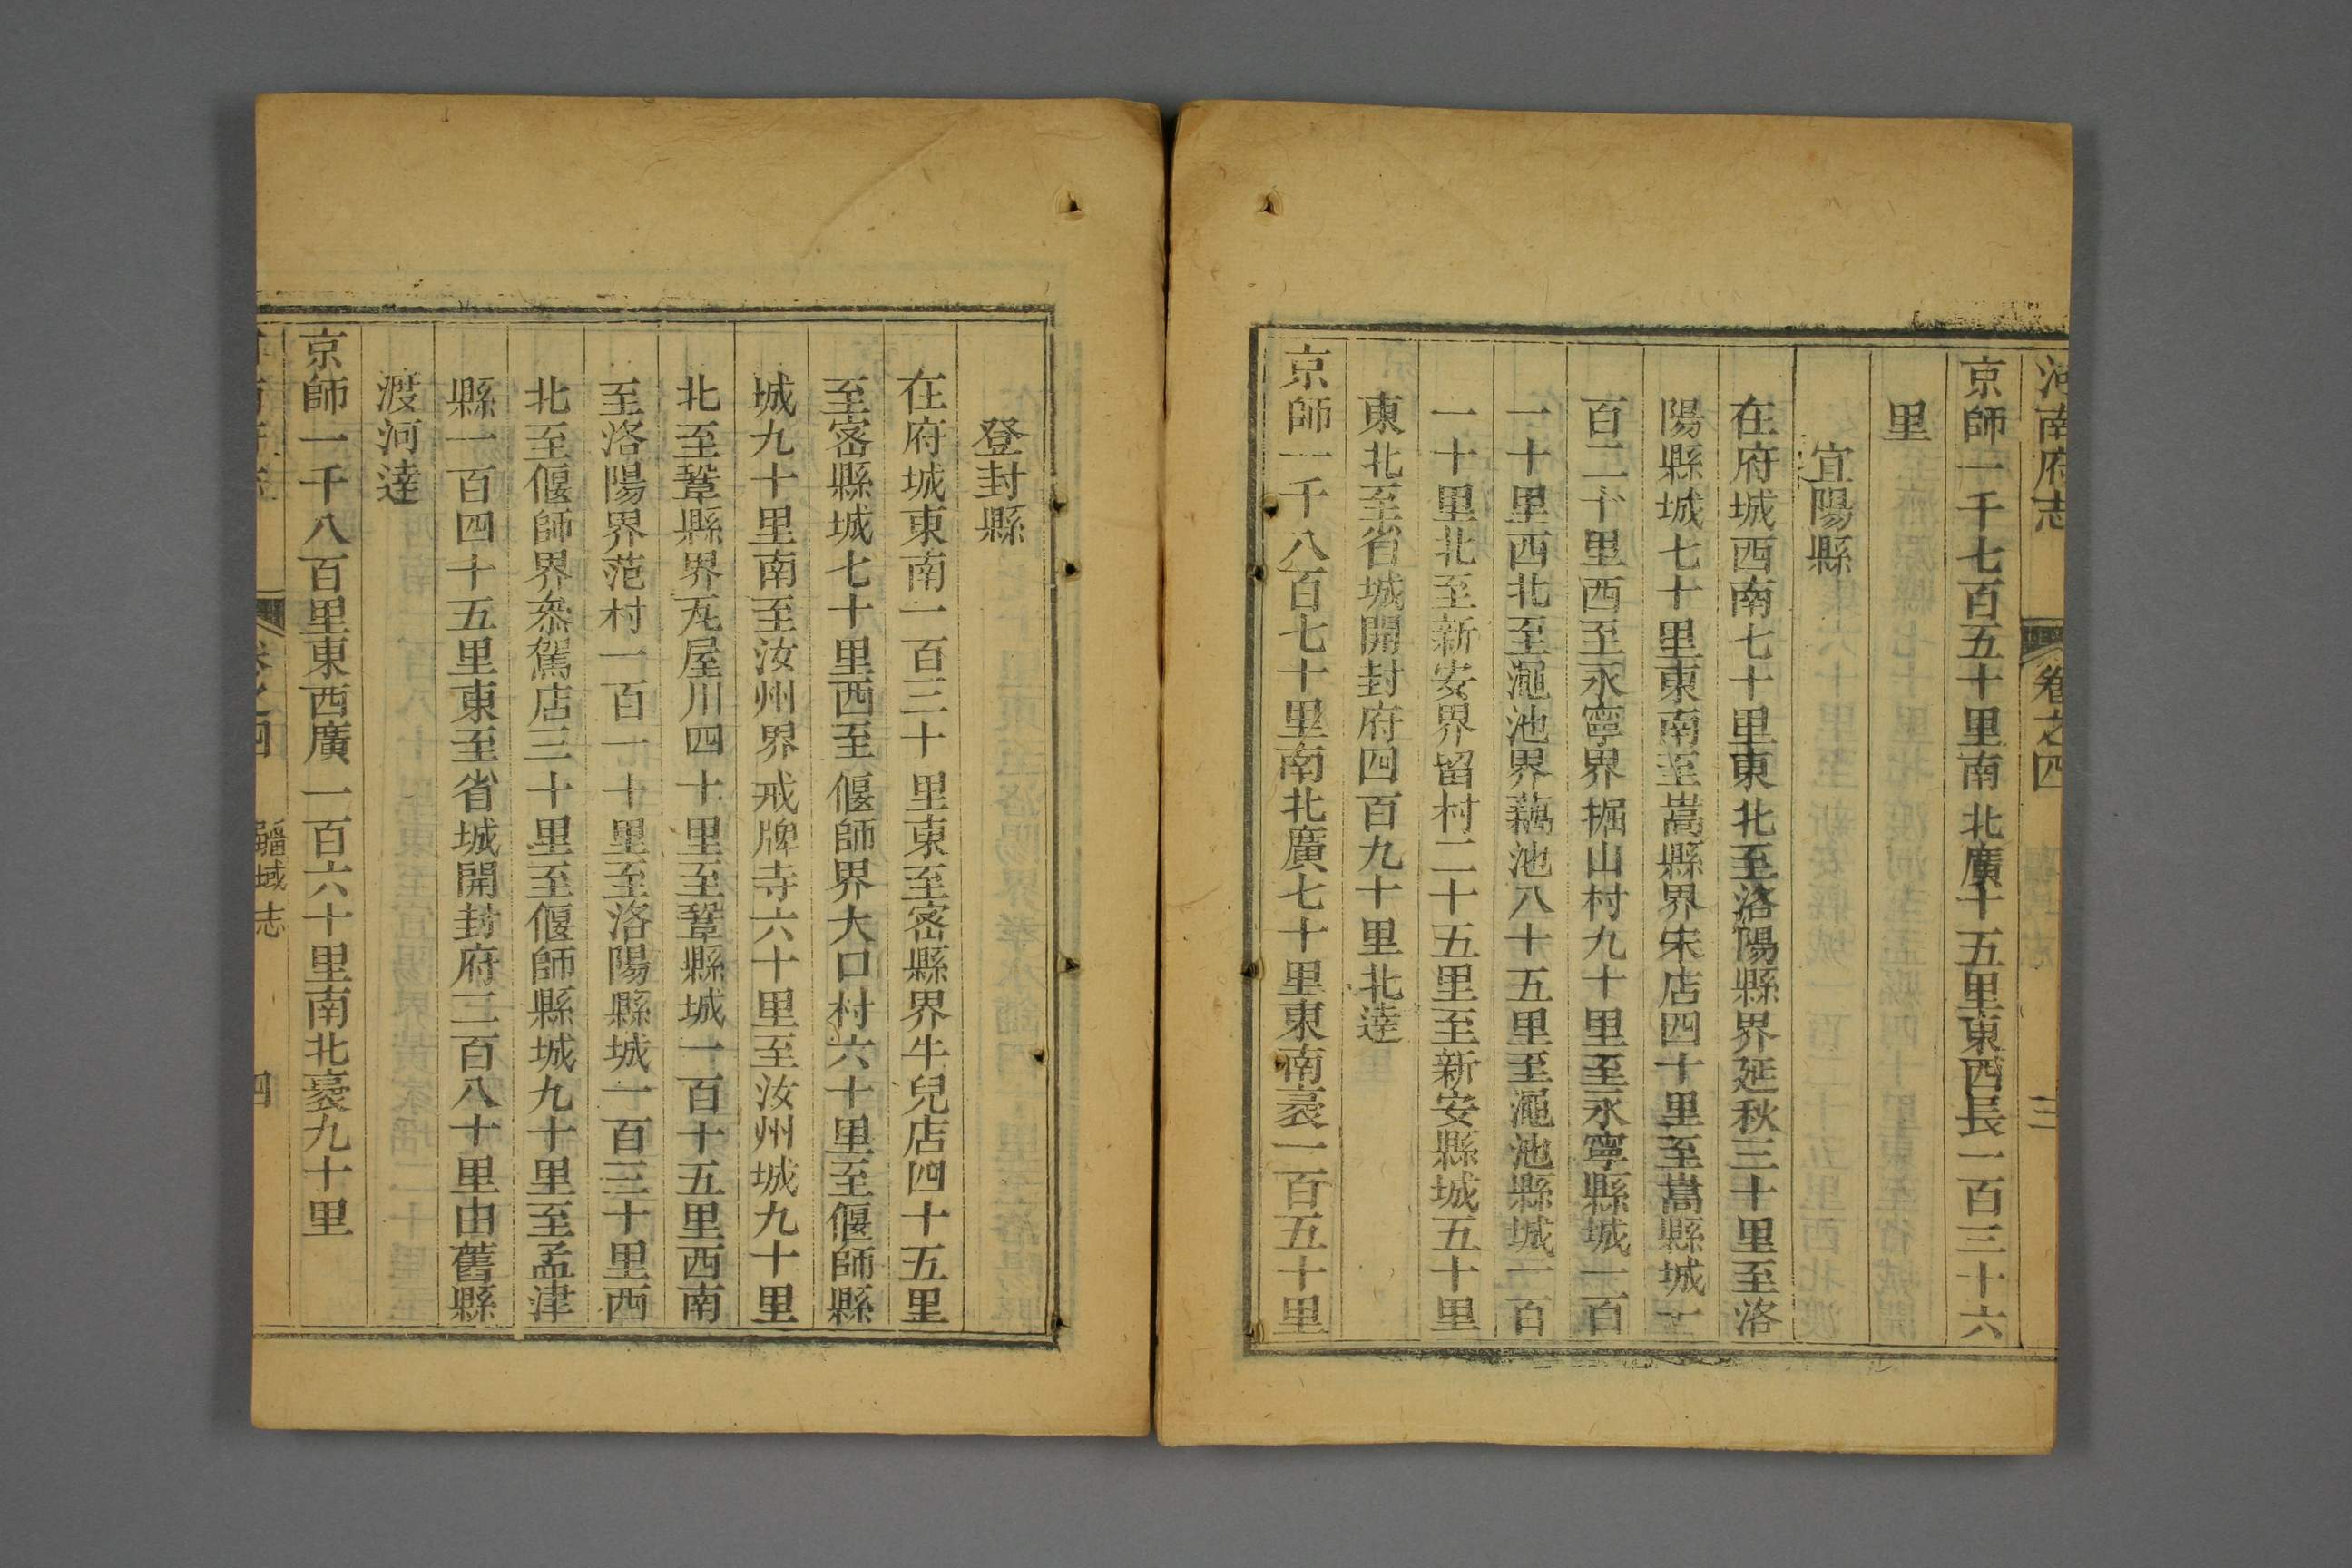 河南府志 卷之四 三
京師一千七百五十里南北廣十五里東西長一百三十六
里
宜陽縣
在府城西南七十里東北至洛陽縣界延秋三十里至洛
陽縣城七十里東南至嵩縣界宋店四十里至嵩縣城一
百二十里西至永寧界掘山村九十里至永寧縣城一百
一十里西北至澠池界藕池八十五里至澠池縣城一百
一十里北至新安界留村二十五里至新安縣城五十里
東北至省城開封府四百九十里北達
京師一千八百七十里南北廣七十里東南袤一百五十里
登封縣
在府城東南一百三十里東至密縣界牛兒店四十五里
至密縣城七十里西至偃師界大口村六十里至偃師縣
城九十里南至汝州界戒牌寺六十里至汝州城九十里
北至鞏縣界瓦屋川四十里至鞏縣城一百十五里西南
至洛陽界范村一百一十里至洛陽縣城一百三十里西
北至偃師界叅駕店三十里至偃師縣城九十里至孟津
縣一百四十五里東至省城開封府三百八十里由舊縣
渡河達
京師一千八百里東西廣一百六十里南北袤九十里
卷之四 疆域志 四